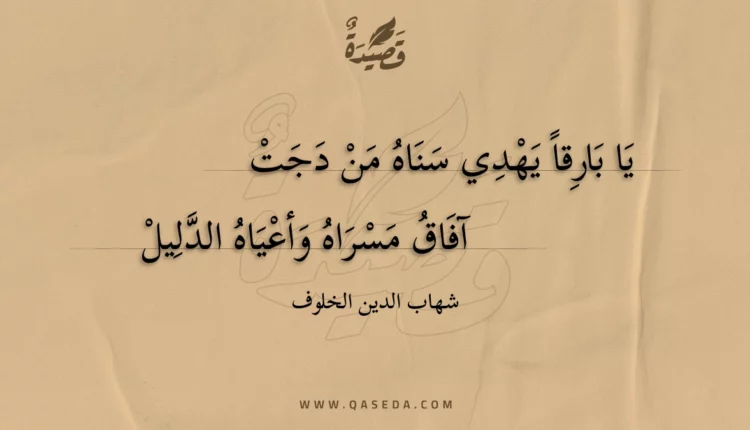 قَصِيدَةٌ
يَا بَارِقاً يَهْدِي سَنَاهُ مَنْ دَجَتْ
آفَاقُ مَسْرَاهُ وَأعْيَاهُ الدَّلِيلْ
شهاب الدين الخلوف
WWW.QASEDA.COM